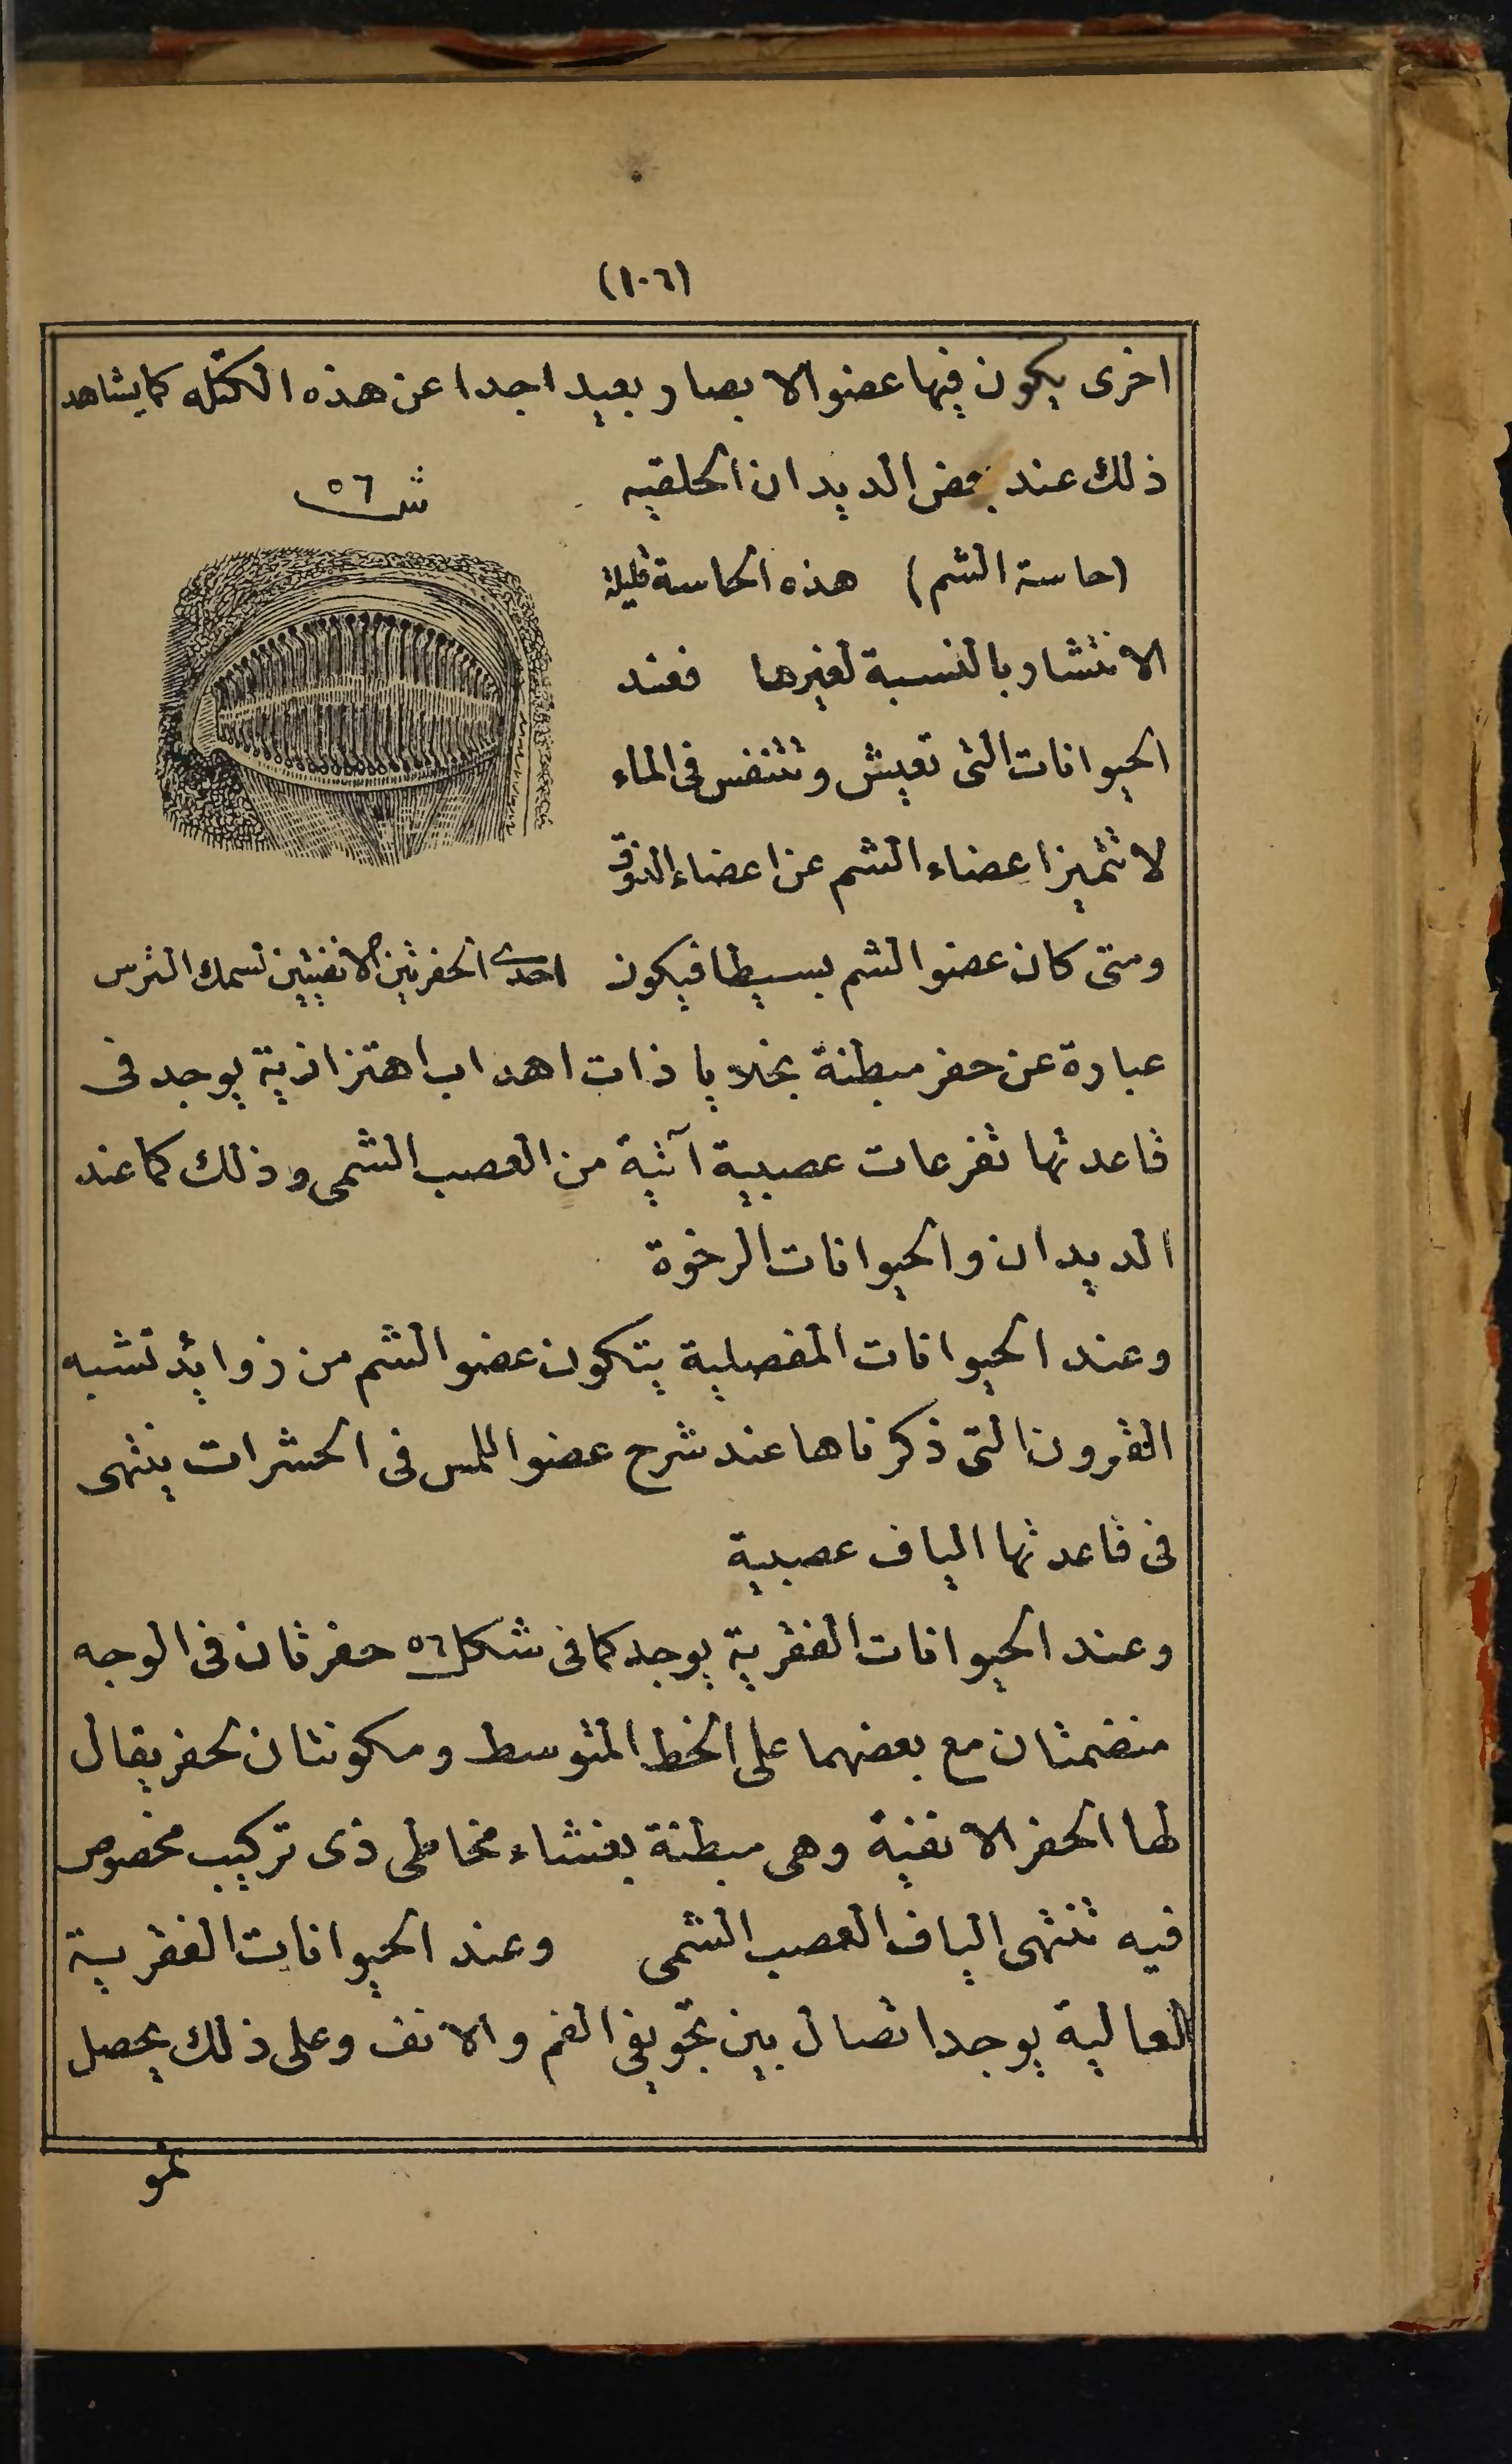 (١٠٦)
اخرى يكون فيها عضو الابصار بعيدا جدا عن هذه الكتله كما يشاهد
ذلك عند بعض الديدان الحلقيه
ش ٥٦
(حاسة الشم) هذه الحاسة قليلة
الانتشار بالنسبة لغيرها فعند
الحيوانات التى تعيش وتتنفس فى الماء
لا تتميز اعضاء الشم عن اعضاء الذوق
ومتى كان عضو الشم بسيطا فيكون
احدى الحفرتين الانفيتين لسمك الترس
عبارة عن حفر مبطنة بخلايا ذات اهداب اهتزازية يوجد فى
قاعدتها تفرعات عصبية آتية من العصب الشمى وذلك كما عند
الديدان والحيوانات الرخوة
وعند الحيوانات المفصلية يتكون عضو الشم من زوايد تشبه
القرون التى ذكرناها عند شرح عضو اللمس فى الحشرات ينتهى
فى قاعدتها الياف عصبية
وعند الحيوانات الفقرية يوجد كما فى شكل ٥٦ حفرتان فى الوجه
منضمتان مع بعضهما على الخط المتوسط ومكونتان لحفر يقال
لها الحفر الانفية وهى مبطنة بغشاء مخاطى ذى تركيب مخصوص
فيه تنتهى الياف العصب الشمى وعند الحيوانات الفقرية
العالية يوجد اتصال بين تجويفى الفم والانف وعلى ذلك يحصل